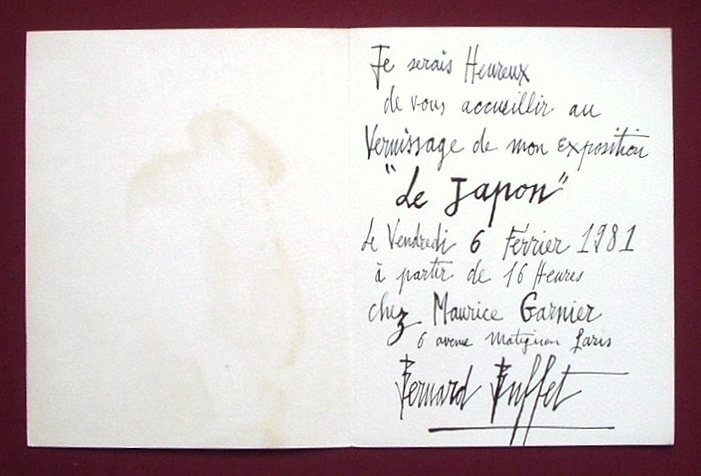 Je serais Heureux
de vous accueillir au
Vernissage de mon exposition
"Le Japon"
Le Vendredi 6 Février 1981
à partir de 16 Heures
chez Maurice Garnier
6 avenue Matignon Paris
Bernard Buffet